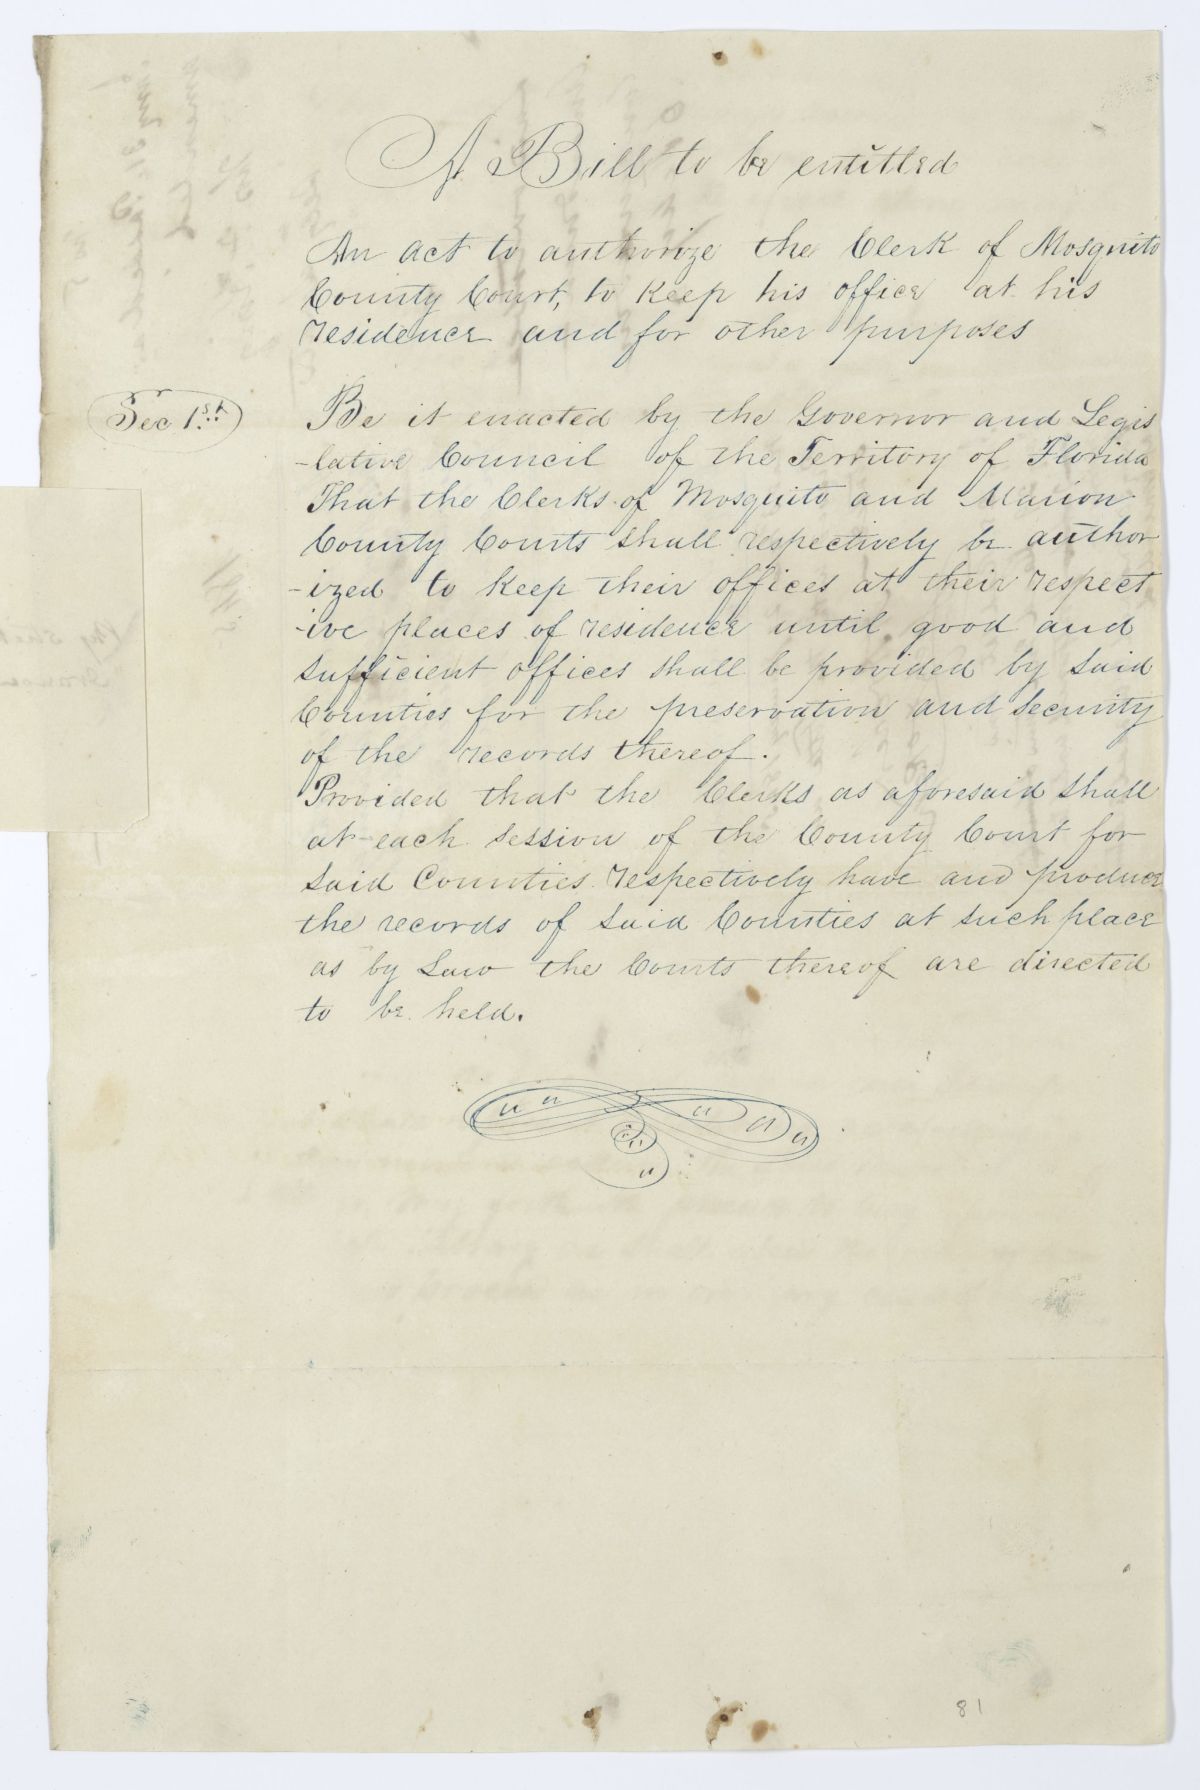 A Bill to be entitled
An act to authorize the Clerk of Mosquito
County Court, to keep his office at his
residence and for other purposes
Sec 1st.
Be it enacted by the Governor and Legis
-lative Council of the Territory of Florida
That the Clerks of Mosquito and Marion
County Courts shall respectively be author
-ized to keep their offices at their respect
-ive places of residence until good and
sufficient offices shall be provided by said
Counties for the preservation and security
of the records thereof.
Provided that the Clerks as aforesaid shall
at each session of the County Court for
said Counties respectively have and produce
the records of said Counties at such place
as by Law the Courts thereof are directed
to be held.
81